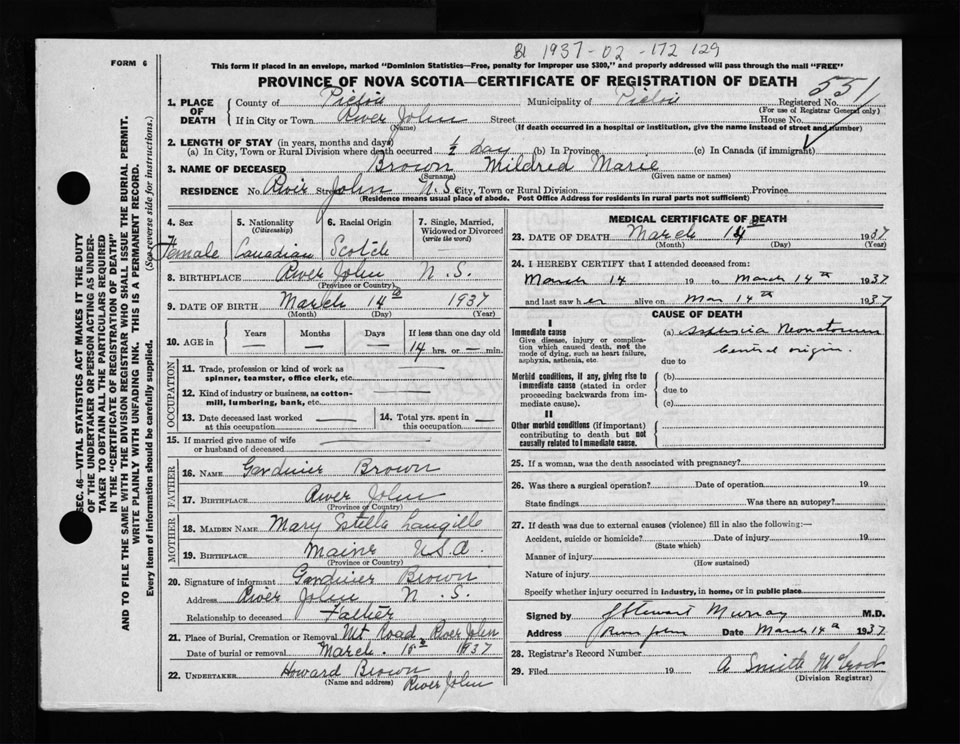 BI 1937-02-172 129
FORM 6
This form if placed in an envelope, marked "Dominion Statistics—Free, penalty for improper use $300," and properly addressed will pass through the mail "FREE"
PROVINCE OF NOVA SCOTIA—CERTIFICATE OF REGISTRATION OF DEATH
551
SEC. 46—VITAL STATISTICS ACT MAKES IT THE DUTY
OF THE UNDERTAKER OR PERSON ACTING AS UNDER-
TAKER TO OBTAIN ALL THE PARTICULARS REQUIRED
IN THE "CERTIFICATE OF REGISTRATION OF DEATH"
AND TO FILE THE SAME WITH THE DIVISION REGISTRAR WHO SHALL ISSUE THE BURIAL PERMIT.
WRITE PLAINLY WITH UNFADING INK. THIS IS A PERMANENT RECORD.
Every item of information should be carefully supplied. (See reverse side for instructions.)
1. PLACE OF DEATH
County of Pictou Municipality of Pictou Registered No.
(For use of Registrar General only)
If in City or Town River John Street House No.
(Name) (If death occurred in a hospital or institution, give the name instead of street and number)
2. LENGTH OF STAY (in years, months and days)
(a) In City, Town or Rural Division where death occurred ½ day (b) In Province (c) In Canada (if immigrant)
3. NAME OF DECEASED Brown Mildred Marie
(Surname) (Given name or names)
RESIDENCE No. River Street John N.S. City, Town or Rural Division Province
(Residence means usual place of abode. Post Office Address for residents in rural parts not sufficient)
4. Sex Female
5. Nationality (Citizenship) Canadian
6. Racial Origin Scotch
7. Single, Married, Widowed or Divorced (write the word) —
8. BIRTHPLACE River John N.S.
(Province or Country)
9. DATE OF BIRTH March 14th 1937
(Month) (Day) (Year)
10. AGE in Years — Months — Days — If less than one day old 14 hrs. or — min.
OCCUPATION
11. Trade, profession or kind of work as spinner, teamster, office clerk, etc. —
12. Kind of industry or business, as cotton-mill, lumbering, bank, etc. —
13. Date deceased last worked at this occupation —
14. Total yrs. spent in this occupation —
15. If married give name of wife or husband of deceased —
FATHER
16. NAME Gardinier Brown
17. BIRTHPLACE River John
(Province or Country)
MOTHER
18. MAIDEN NAME Mary Stella Langille
19. BIRTHPLACE Maine U.S.A.
(Province or Country)
20. Signature of informant Gardinier Brown
Address River John N.S.
Relationship to deceased Father
21. Place of Burial, Cremation or Removal Mt Road, River John
Date of burial or removal March 15th 1937
22. UNDERTAKER Howard Brown
(Name and address) River John
MEDICAL CERTIFICATE OF DEATH
23. DATE OF DEATH March 14th 1937
(Month) (Day) (Year)
24. I HEREBY CERTIFY that I attended deceased from:
March 14 19 to March 14th 1937
and last saw her alive on Mar 14th 1937
CAUSE OF DEATH
I
Immediate cause
Give disease, injury or complication which caused death, not the mode of dying, such as heart failure, asphyxia, asthenia, etc.
(a) Asphyxia Neonatorum
Central origin.
due to
Morbid conditions, if any, giving rise to immediate cause (stated in order proceeding backwards from immediate cause).
(b)
due to
(c)
II
Other morbid conditions (if important) contributing to death but not causally related to immediate cause.
25. If a woman, was the death associated with pregnancy?
26. Was there a surgical operation? Date of operation 19
State findings Was there an autopsy?
27. If death was due to external causes (violence) fill in also the following:—
Accident, suicide or homicide? Date of injury 19
(State which)
Manner of injury
(How sustained)
Nature of injury
Specify whether injury occurred in industry, in home, or in public place
Signed by J Stewart Murray M.D.
Address River John Date March 14th 1937
28. Registrar's Record Number
29. Filed 19 A Smith McLeod
(Division Registrar)